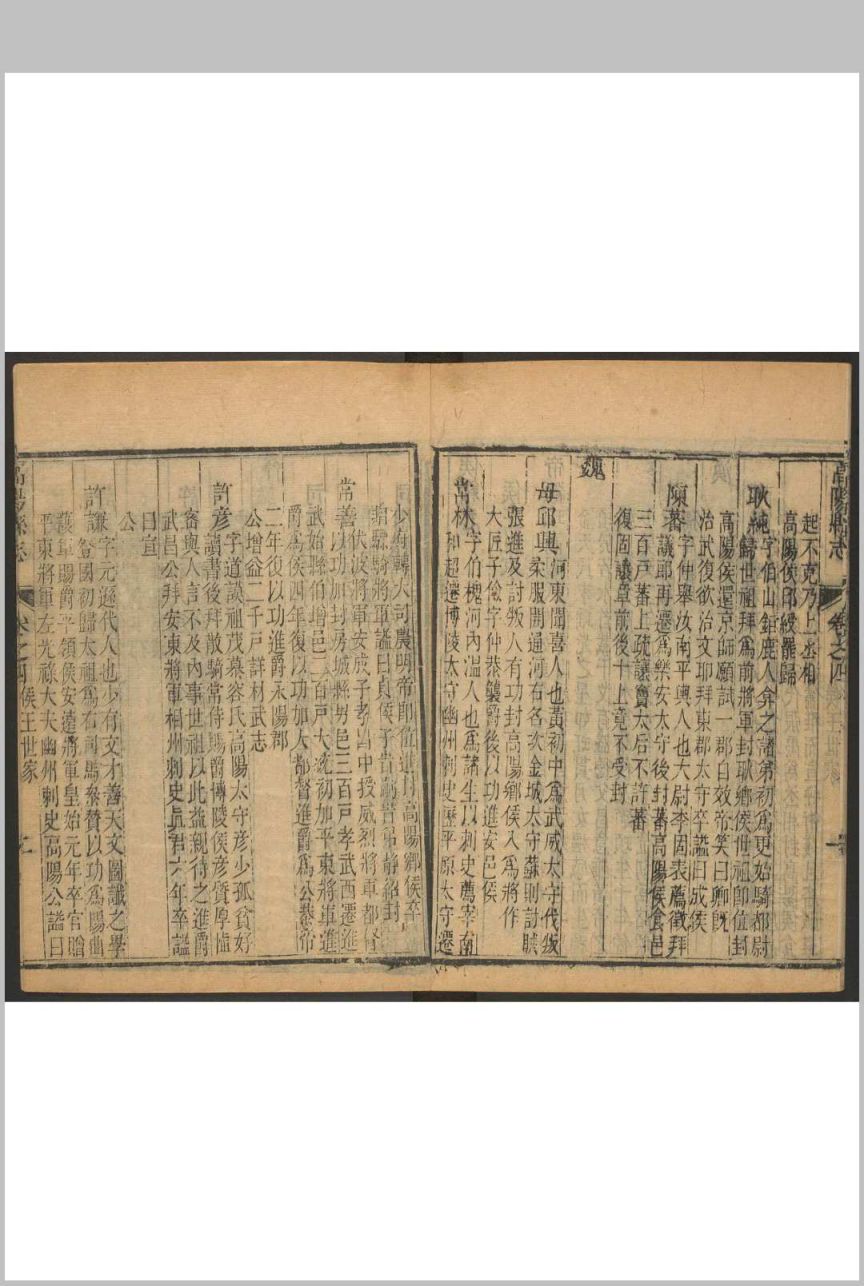 高陽縣志
卷之四
起不克乃上丞相
高陽侯印綬罷歸
耿純字伯山鉅鹿人弇之諸弟初為更始騎都尉
歸世祖拜為前將軍封耿鄉侯世祖即位封
高陽侯還京師願試一郡自效帝笑曰卿既
治武復欲治文耶拜東郡太守卒謚曰成侯
陳蕃字仲舉汝南平輿人也大尉李固表薦徵拜
議郎再遷為樂安太守後封蕃高陽侯食邑
三百戶蕃上疏讓竇太后不許蕃
復固讓章前後十上竟不受封
魏
毋邱興河東聞喜人也黃初中為武威太守伐叛
柔服開通河右名次金城太守蘇則討賊
張進及討叛人有功封高陽鄉侯入為將作
大匠子儉字仲恭襲爵後以功進安邑侯
常林字伯槐河內溫人也為諸生以刺史薦宰南
和超遷博陵太守幽州刺史歷平原太守遷
少府轉大司農明帝即位進封高陽鄉侯卒
贈驃騎將軍謚曰貞侯子旹嗣旹弟靜紹封
伏波將軍安成子孝昌中授威烈將軍都督
常善以功加封房城縣男邑三百戶孝武西遷進
武始縣伯增邑二百戶大統初加平東將軍進
爵為侯四年復以功加大都督進爵為公恭帝
二年復以功進爵永陽郡
公增益二千戶詳材武志
許彥字道謨祖茂慕容氏高陽太守彥少孤貧好
讀書後拜散騎常侍賜爵博陵侯彥質厚慎
密與人言不及內事世祖以此益親待之進爵
武昌公拜安東將軍相州刺史真君六年卒謚
曰宣
公
許謙字元遜代人也少有文才善天文圖讖之學
登國初歸太祖為右司馬叅贊以功為陽曲
護軍賜爵平領侯安遠將軍皇始元年卒官贈
平東將軍左光祿大夫幽州刺史高陽公謚曰
高陽縣志
卷之四 侯王世家